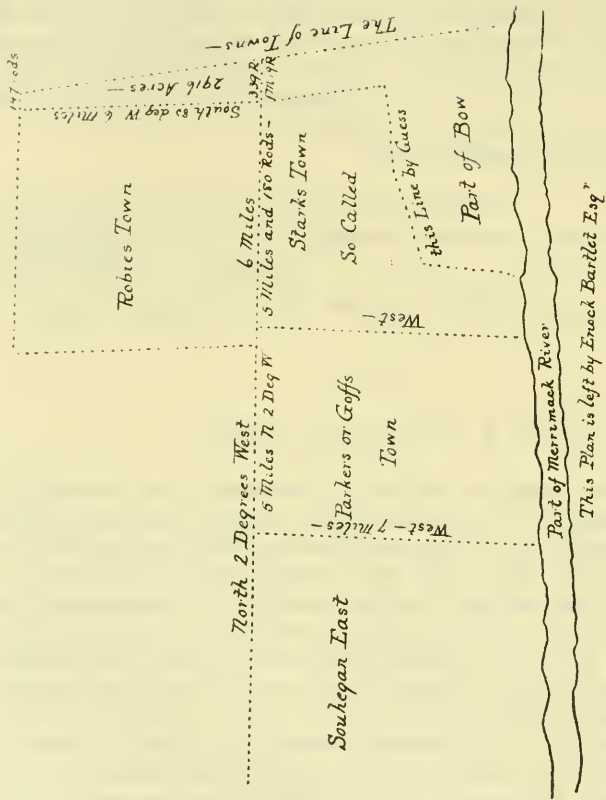 The Line of Towns —
147 rods
2916 Acres —
South 83 deg W 6 Miles
339 R.
Robies Town
6 Miles
5 Miles and 180 Rods —
Starks Town
So Called
this Line by Guess
Part of Bow
West —
North 2 Degrees West
5 Miles N 2 Deg W
Parkers or Goffs
Town
West — 7 Miles —
Souhegan East
Part of Merrimack River
This Plan is left by Enock Bartlet Esqr